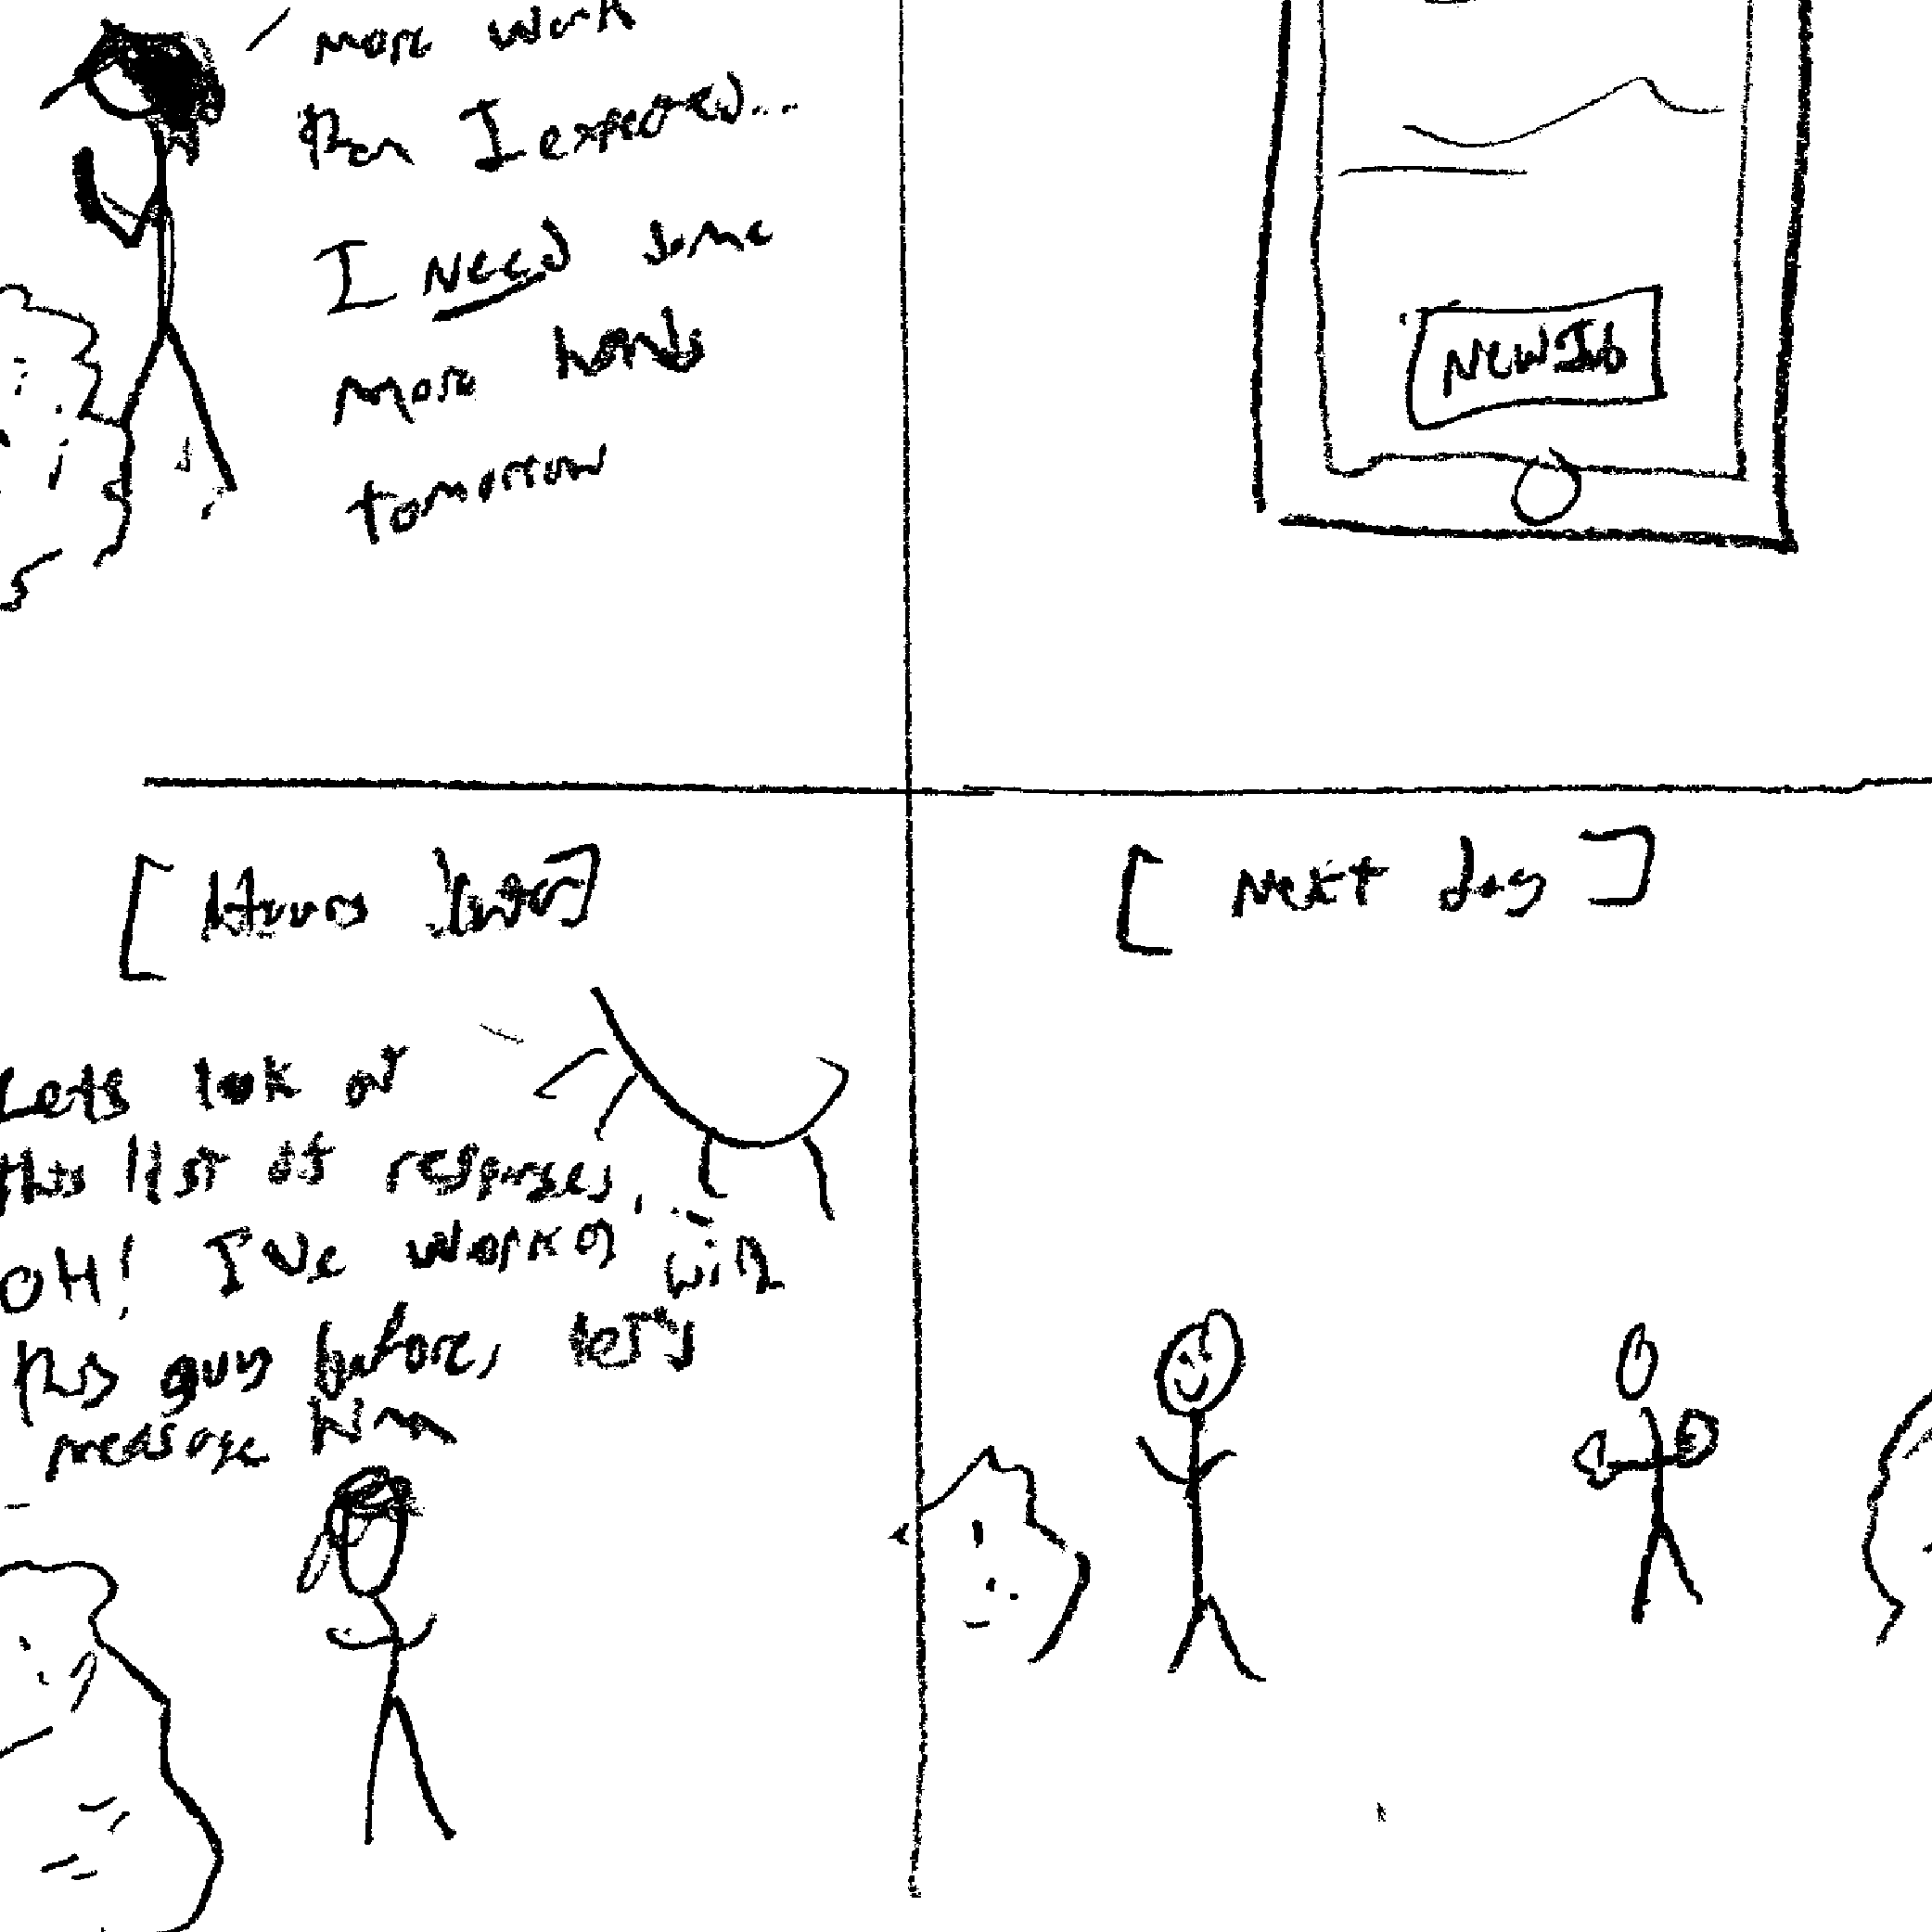 more work
than I expected...
I NEED some
more hands
tomorrow
NEW Job
[ Hours later ]
Lets look at
this list of responses,
OH! I've worked with
this guy before, let's
message him
[ Next day ]